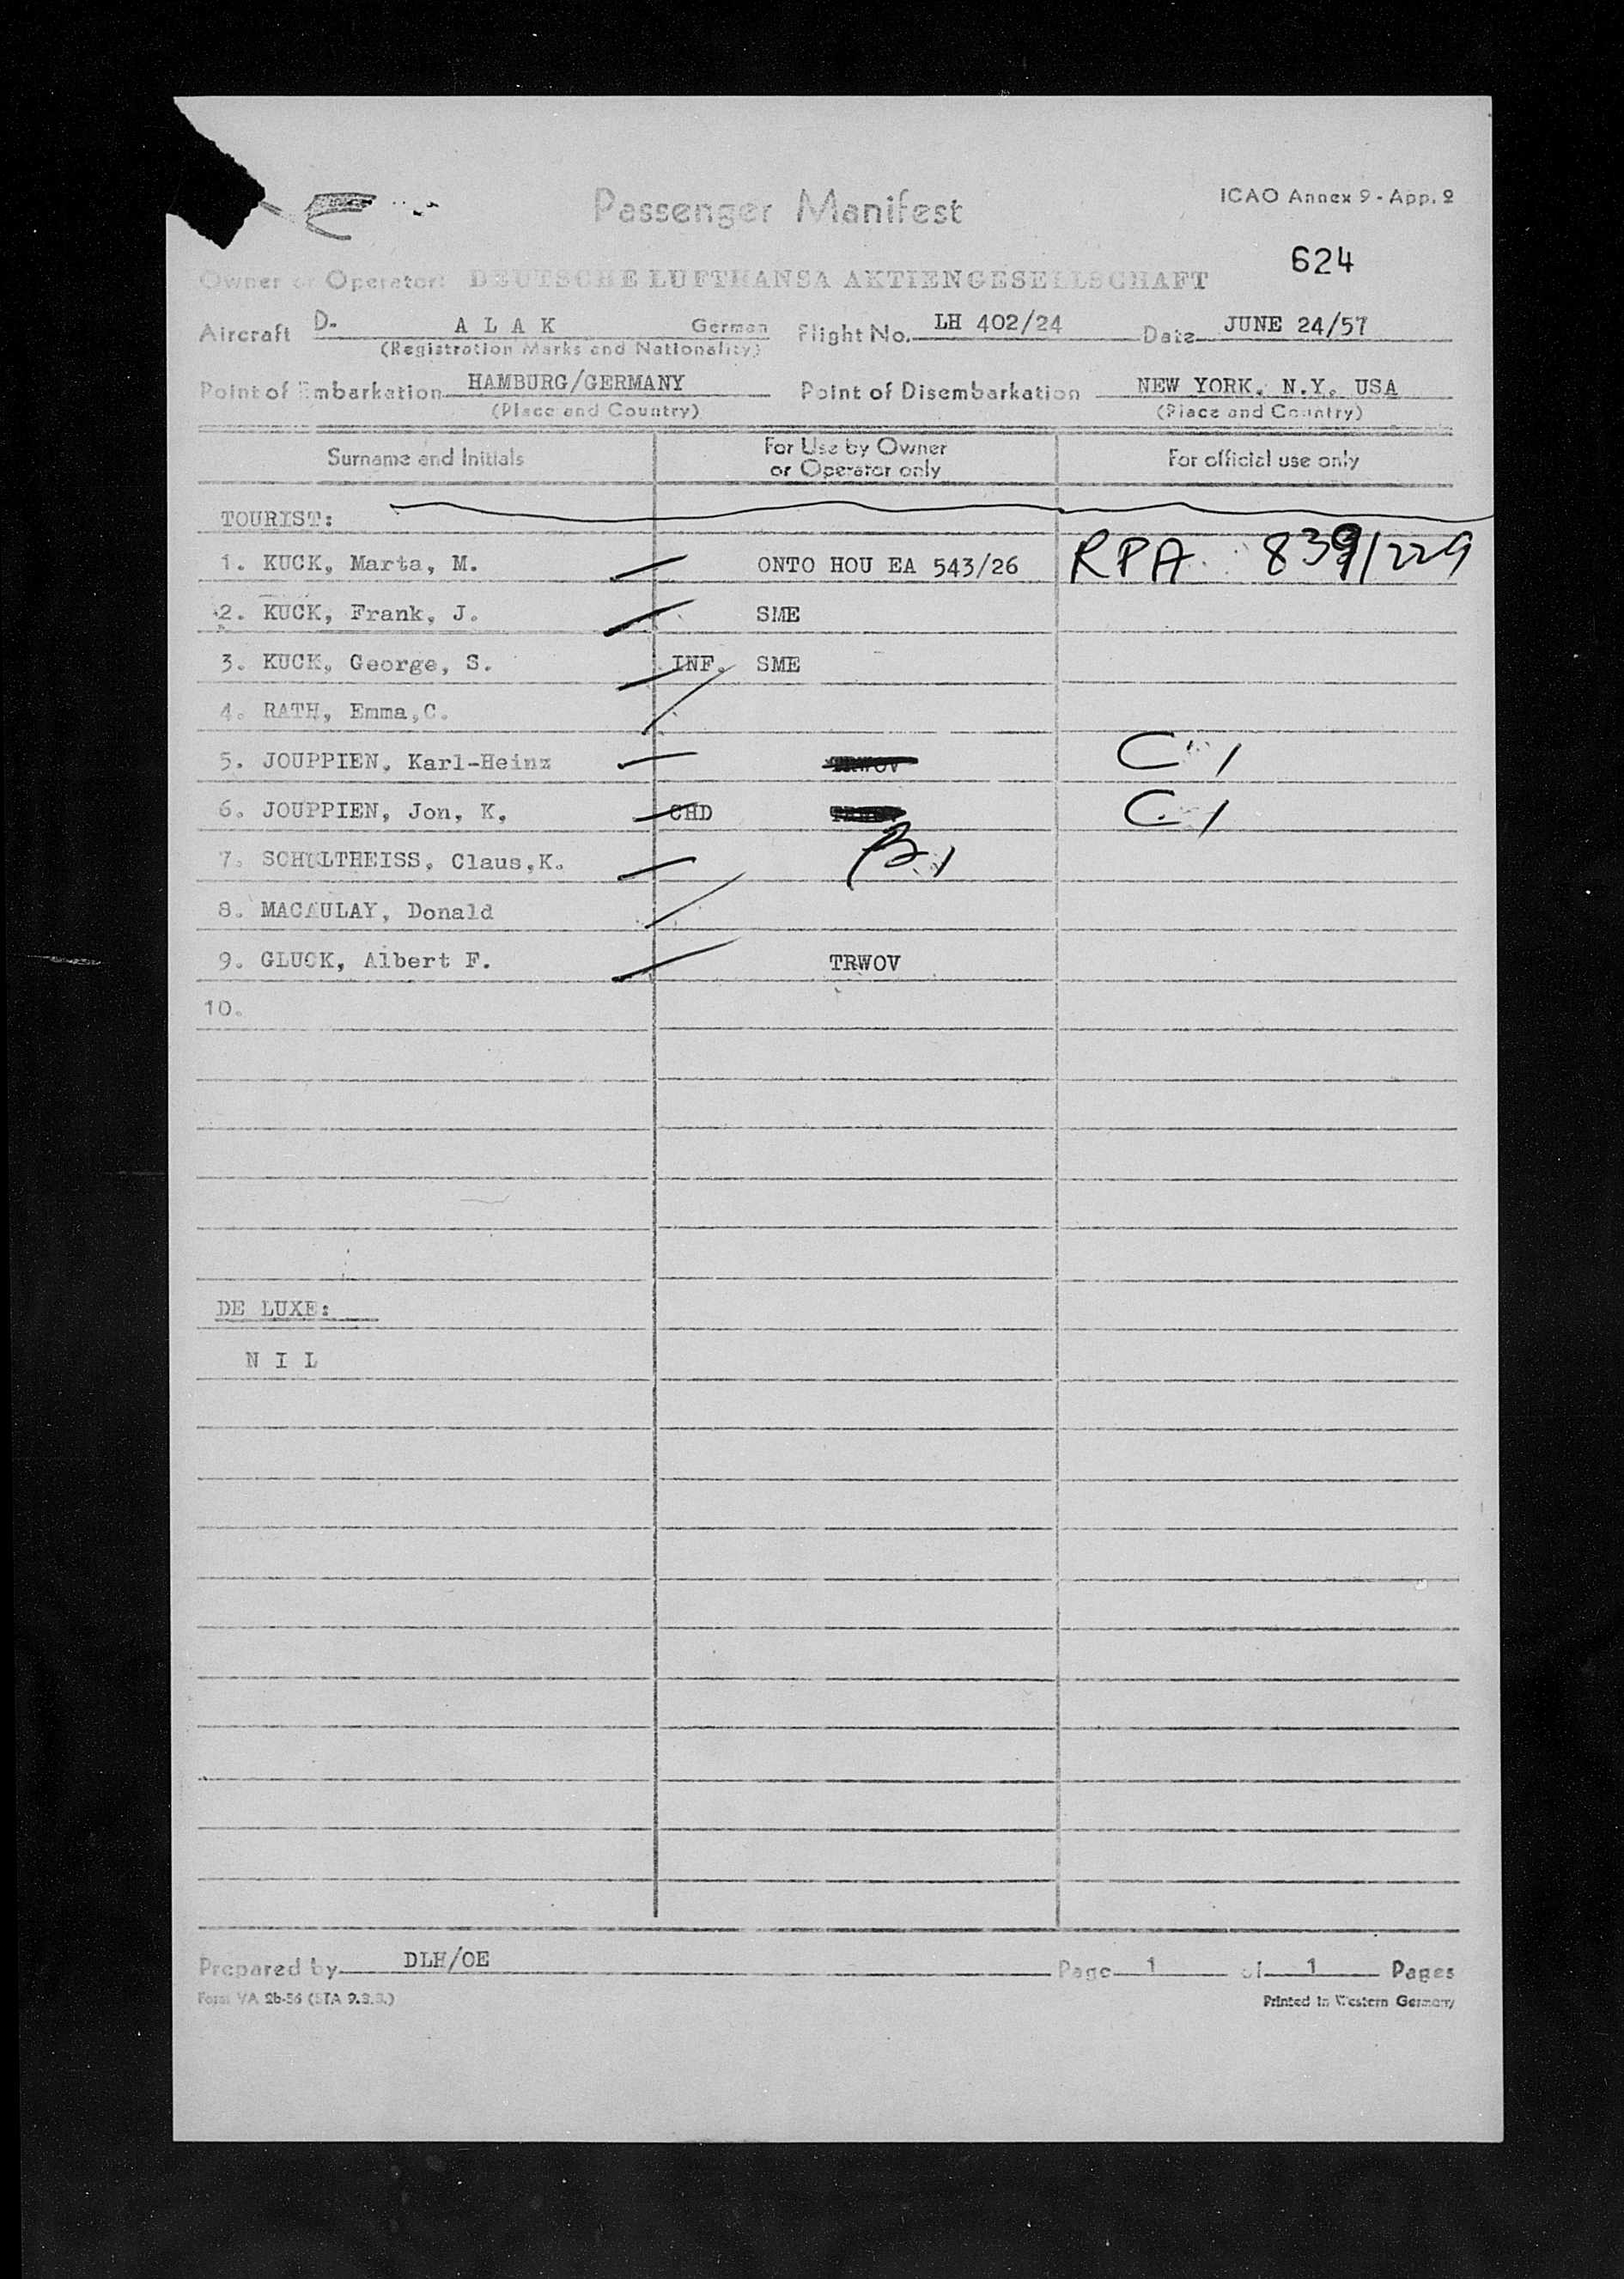 Passenger Manifest
ICAO Annex 9 - App. 2
624
Owner or Operator: DEUTSCHE LUFTHANSA AKTIENGESELLSCHAFT
Aircraft D. A L A K German Flight No. LH 402/24 Date JUNE 24/57
(Registration Marks and Nationality)
Point of Embarkation HAMBURG/GERMANY Point of Disembarkation NEW YORK, N.Y. USA
(Place and Country) (Place and Country)
Surname and Initials For Use by Owner or Operator only For official use only
TOURIST:
1. KUCK, Marta, M. ONTO HOU EA 543/26 RPA 839/229
2. KUCK, Frank, J. SME
3. KUCK, George, S. INF. SME
4. RATH, Emma,C.
5. JOUPPIEN, Karl-Heinz TRWOV C 1
6. JOUPPIEN, Jon, K. CHD C 1
7. SCHULTHEISS, Claus,K. B 1
8. MACAULAY, Donald
9. GLUCK, Albert F. TRWOV
10.
DE LUXE:
N I L
Prepared by DLH/OE Page 1 of 1 Pages
Form VA 2b-56 (STA 9.3.3.) Printed in Western Germany